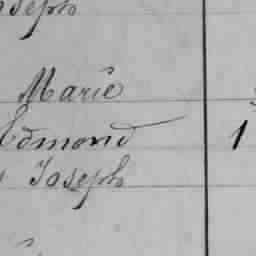 Joseph
Marie
Edmond 1
Joseph